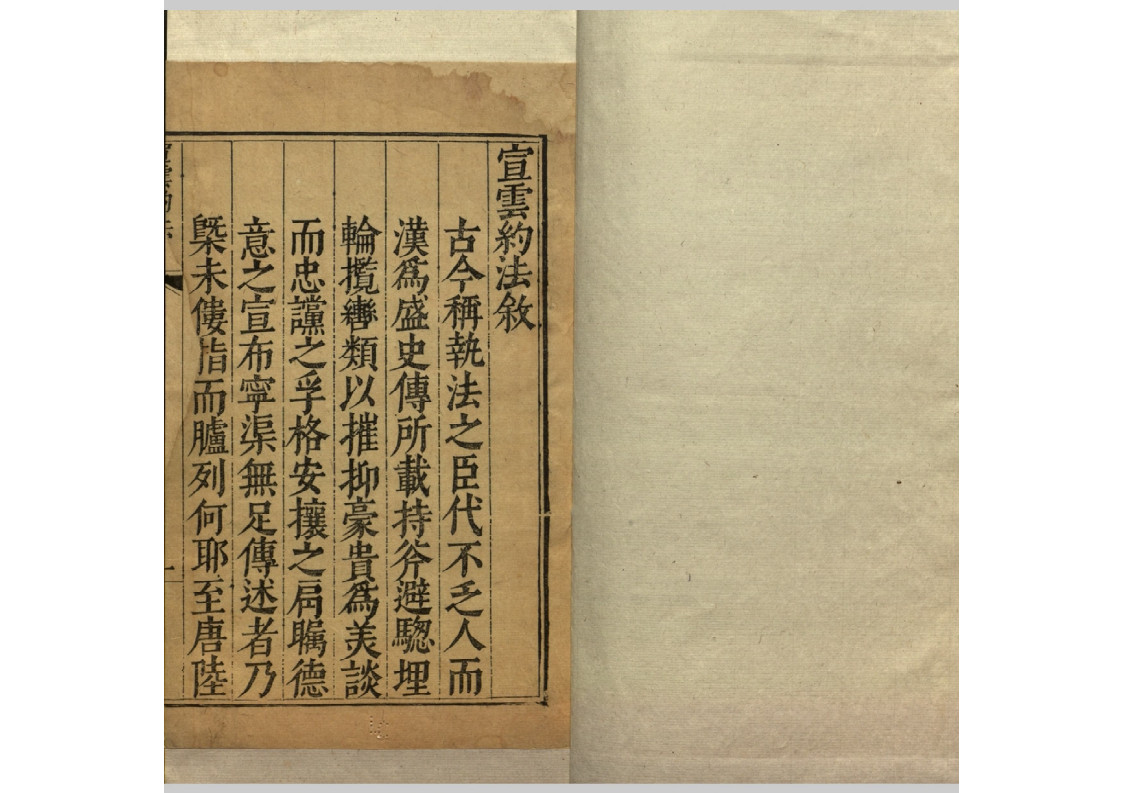 宣雲約法敘
古今稱執法之臣代不乏人而
漢爲盛史傳所載持斧避騘埋
輪攬轡類以摧抑豪貴爲美談
而忠讜之孚格安攘之扃矚德
意之宣布寧渠無足傳述者乃
槩未僂指而臚列何耶至唐陸